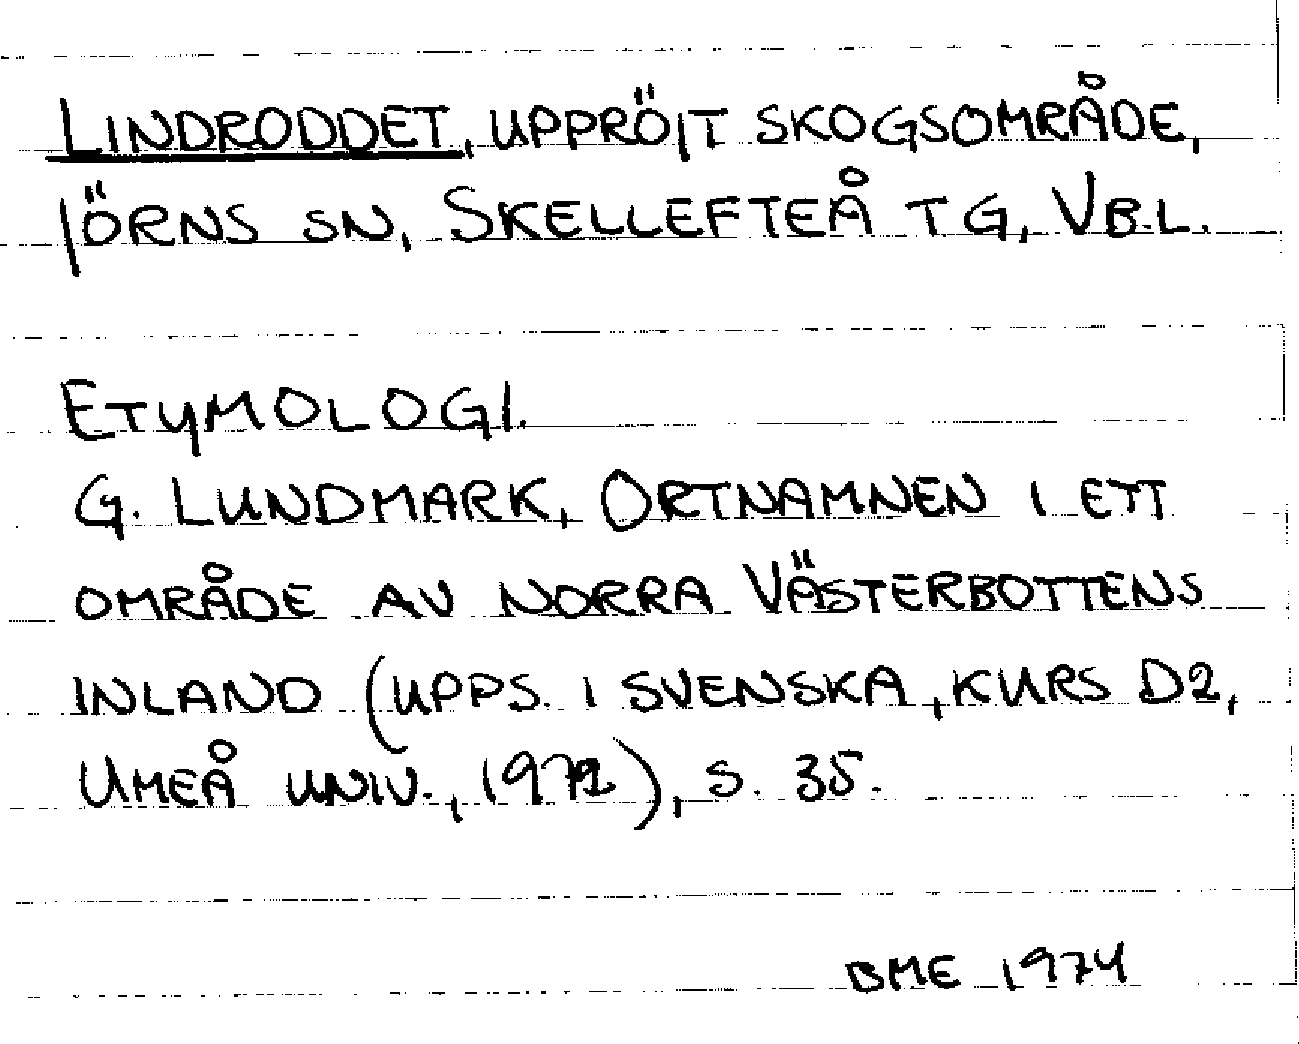 LINDRODDET, UPPRÖJT SKOGSOMRÅDE,
JÖRNS SN, SKELLEFTEÅ TG, VB.L.
ETYMOLOGI.
G. LUNDMARK, ORTNAMNEN I ETT
OMRÅDE AV NORRA VÄSTERBOTTENS
INLAND (UPPS. I SVENSKA, KURS D2,
UMEÅ UNIV., 1972), S. 35.
BME 1974